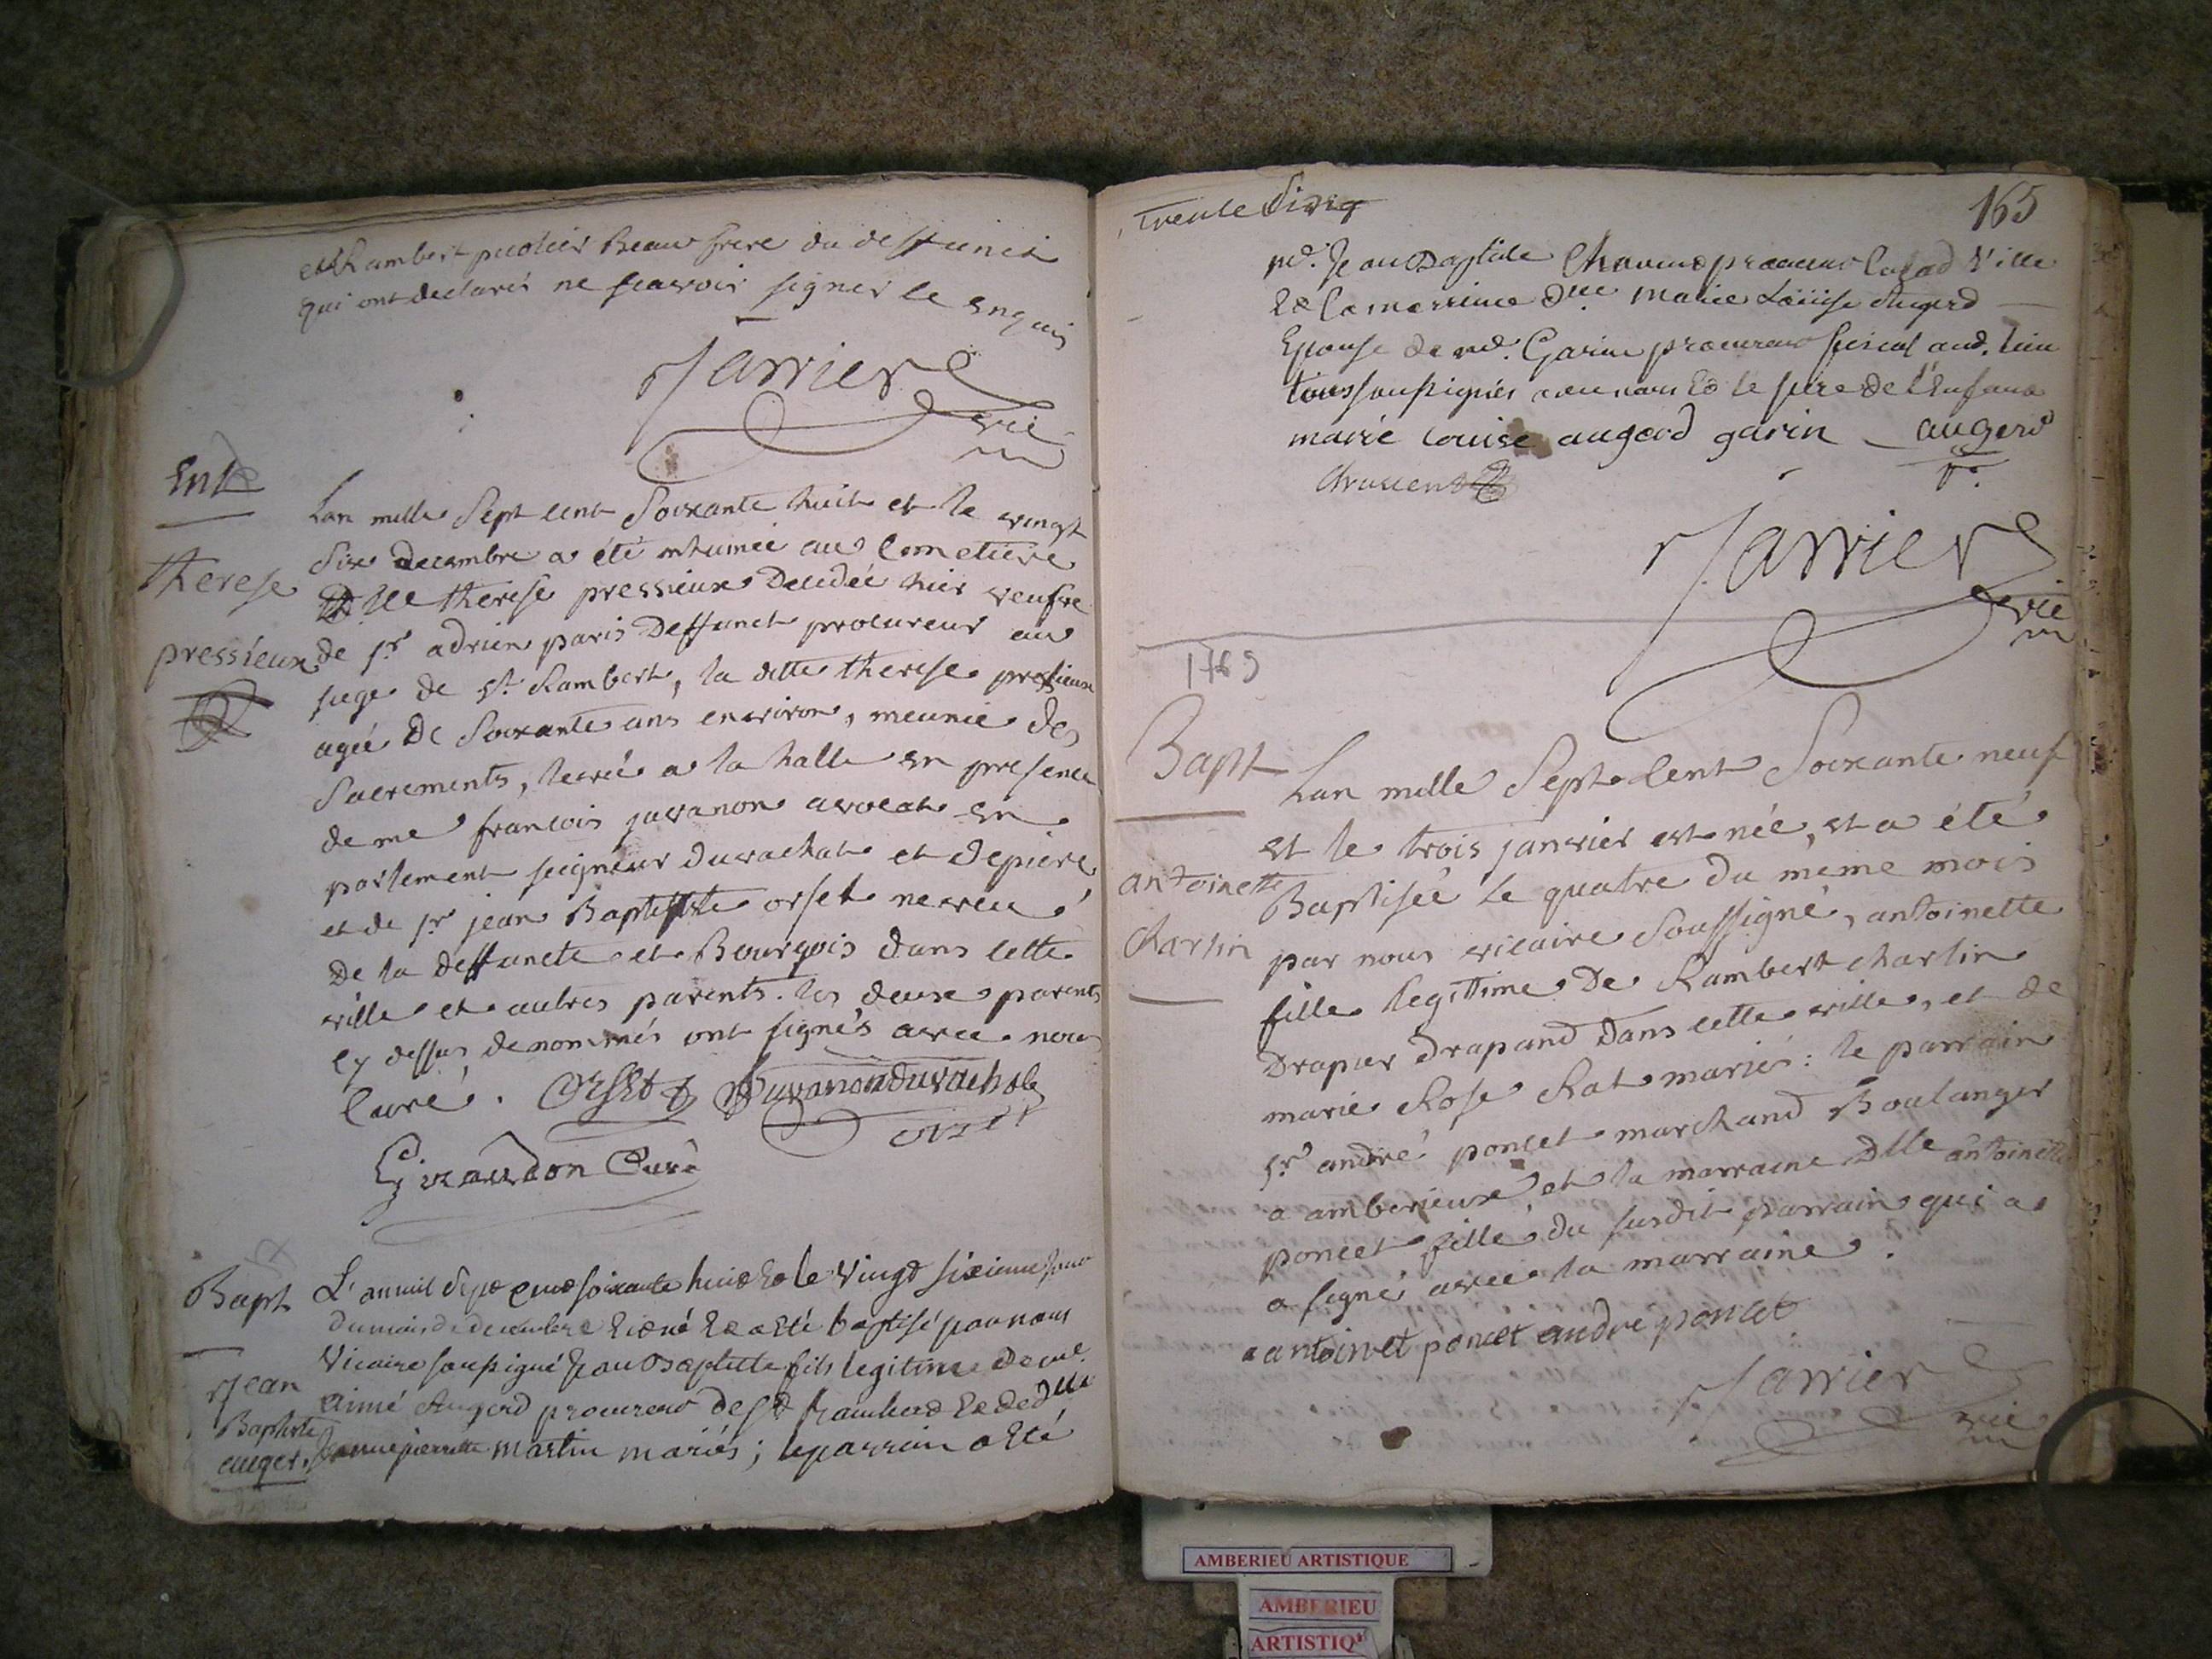 et Rambert pudtier Beau frere du deffunct
qui ont declarés ne scavoir signer ce enquis
Jarrier
vic
Ent
therese
pressieux
Lan mille Sept cent Soixante huit et le vingt
Six decembre a été inhumée au Cemetiere
Dlle therese pressieux Decedée hier veufve
de sr adrien paris Deffunct procureur au
siege de st Rambert, la ditte therese pressieux
agée De Soixante ans environ, meunie des
Sacrements, levée a la halle en presence
de me francois juvanon avocat en
parlement seigneur duvachat et depiere
et de sr jean Baptiste orset neveu
De la deffuncte et Bourgois dans cette
ville et autres parents. les deux parents
cy dessus denommés ont signés avec nous
Curé. Orset Juvanon duvachat
orset
Girardon Curé
Bapt
Jean
Baptiste
auger.
L'an mil sept cent soixante huit et le Vingt sixieme jour
du mois de decembre est né et a eté baptisé par nous
Vicaire soussigné Jean Baptiste fils legitime de me.
aimé Augerd procureur de st Rambert et de dlle
jeanne pierrette Martin mariés; le parrain a eté
trente Cinq
165
me. Jean Baptiste Chauvent procureur en lad Ville
et la marrine dlle marie Loüise Augerd
Epouse de me. Garin procureur fiscal aud. lieu
tous soussignés avec nous et le pere de l'enfant
marie louise augerd garin augerd
pr.
Chauvent
Jarrier
vic
1769
Bapt
antoinette
charlin
Lan mille Sept Cent Soixante neuf
et le trois janvier est née, et a été
Baptisée le quatre du même mois
par nous vicaire Soussigné, antoinette
fille legittime De Rambert charlin
Drapier drapand Dans cette ville, et de
marie Rose Rat mariés: le parrain
sr andré poncet marchand Boulanger
a amberieux et la marraine Dlle antoinette
poncet fille du susdit parrain qui a
a signé avec la marraine.
antoinet poncet andré poncet
Jarrier
vic
AMBERIEU ARTISTIQUE
AMBERIEU
ARTISTIQ